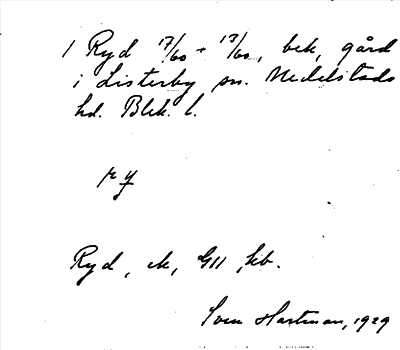 1 Ryd 17/60 + 13/60, bek, gård
i Listerby sn. Medelstads
hd. Blek. l.
ry
Ryd, ek, G11, kb.
Sven Hartman, 1929